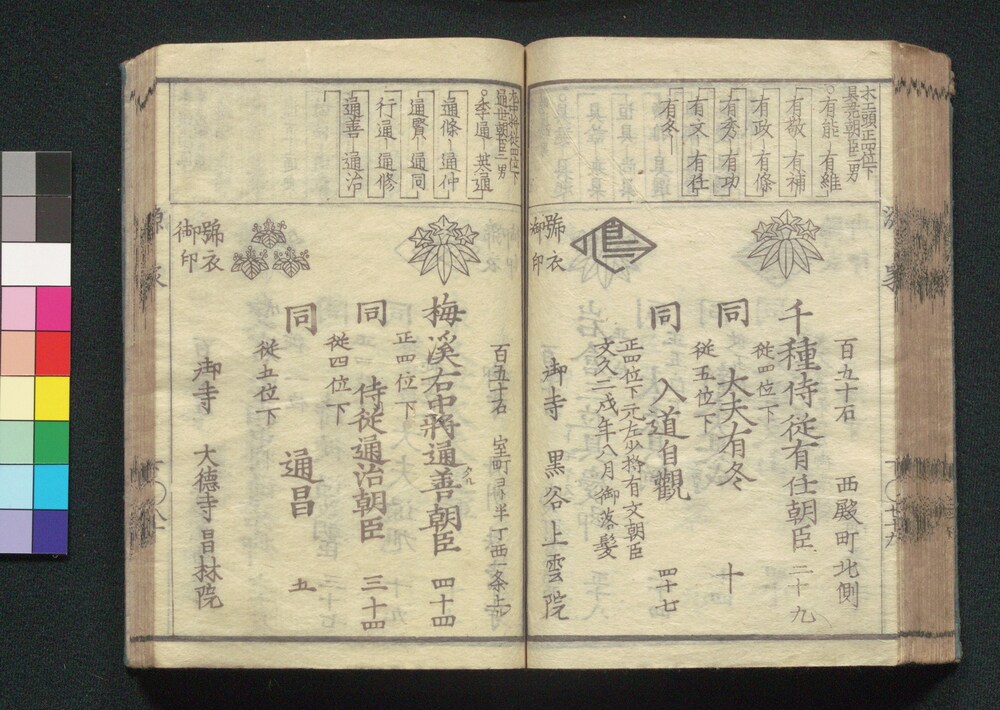 木工頭正四位下
具起朝臣二男
有能 有維
有敬 有補
有政 有條
有秀 有功
有文 有任
有冬
百九十石 西殿町北側
千種侍従有任朝臣 二十九
従四位下
同 大夫有冬 十
従五位下
同 入道自觀 四十七
正四位下元左少将有文朝臣
文久二戌年八月御落髪
號衣
御印
御寺 黒谷上雲院
通世朝臣二男
季通 英通
通條 通仲
通賢 通同
行通 通修
通善 通治
百五十石 室町 半丁西一条上
梅溪右中將通善朝臣 四十四
正四位下
同 侍従通治朝臣 三十四
従四位下
同 通昌 五
従五位下
號衣
御印
御寺 大德寺昌林院